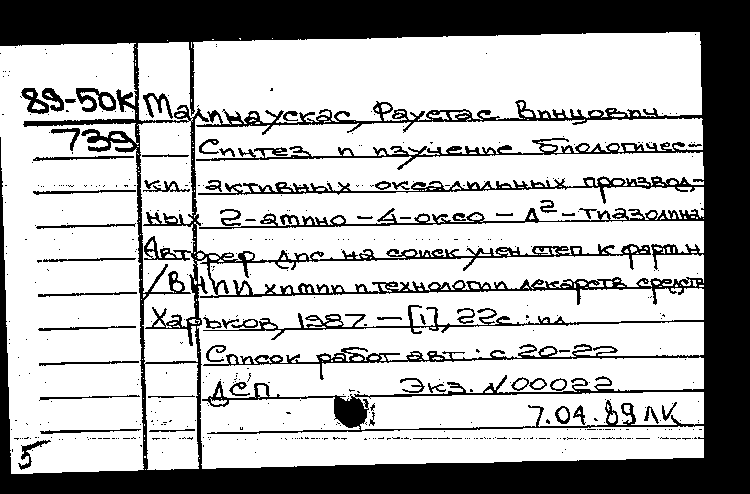 89-50К
739
Малинаускас, Фаустас Винцович
Синтез и изучение биологичес-
ки активных оксалильных производ-
ных 2-амино-4-оксо-Δ²-тиазолина:
Автореф. дис. на соиск. учен. степ. к. фарм. н.
/ВНИИ химии и технологии лекарств. средств
Харьков, 1987. - [1], 22с.: ил.
Список работ авт.: с. 20-22
ДСП. Экз. N00022
7.04.89 ЛК
5